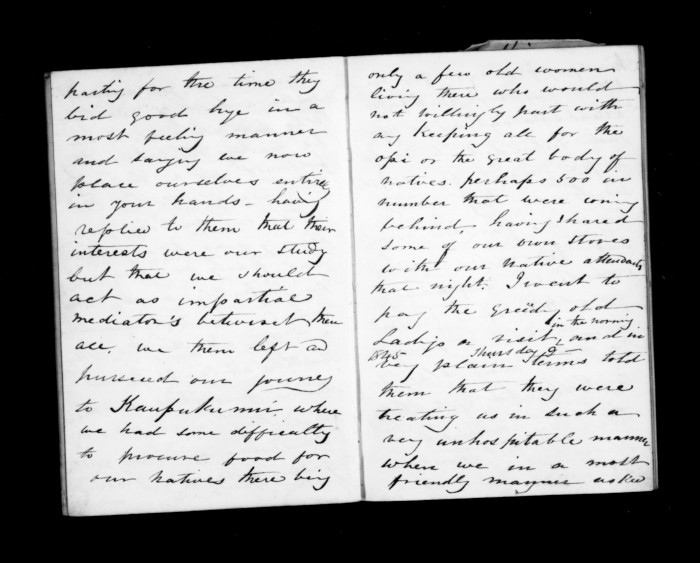 parting for the time they
bid good bye in a
most feeling manner
and saying we now
place ourselves entirely
in your hands - having
replied to them that their
interests were our study
but that we should
act as impartial
mediator's betwixt them
all, we then left and
pursued our journey
to Kaupukunui where
we had some difficulty
to procure food for
our natives there being
only a few old women
living there who would
not willingly part with
any keeping all for the
ope or the great body of
natives. perhaps 500 in
number that were coming
behind - having shared
some of our own stores
with our native attendants
that night. I went to
pay the old
Lady's a visit, in the morning and in
1845 Thursday 9
very plain terms told
them that they were
treating us in such a
very unhospitable manner
when we in a most
friendly manner asked